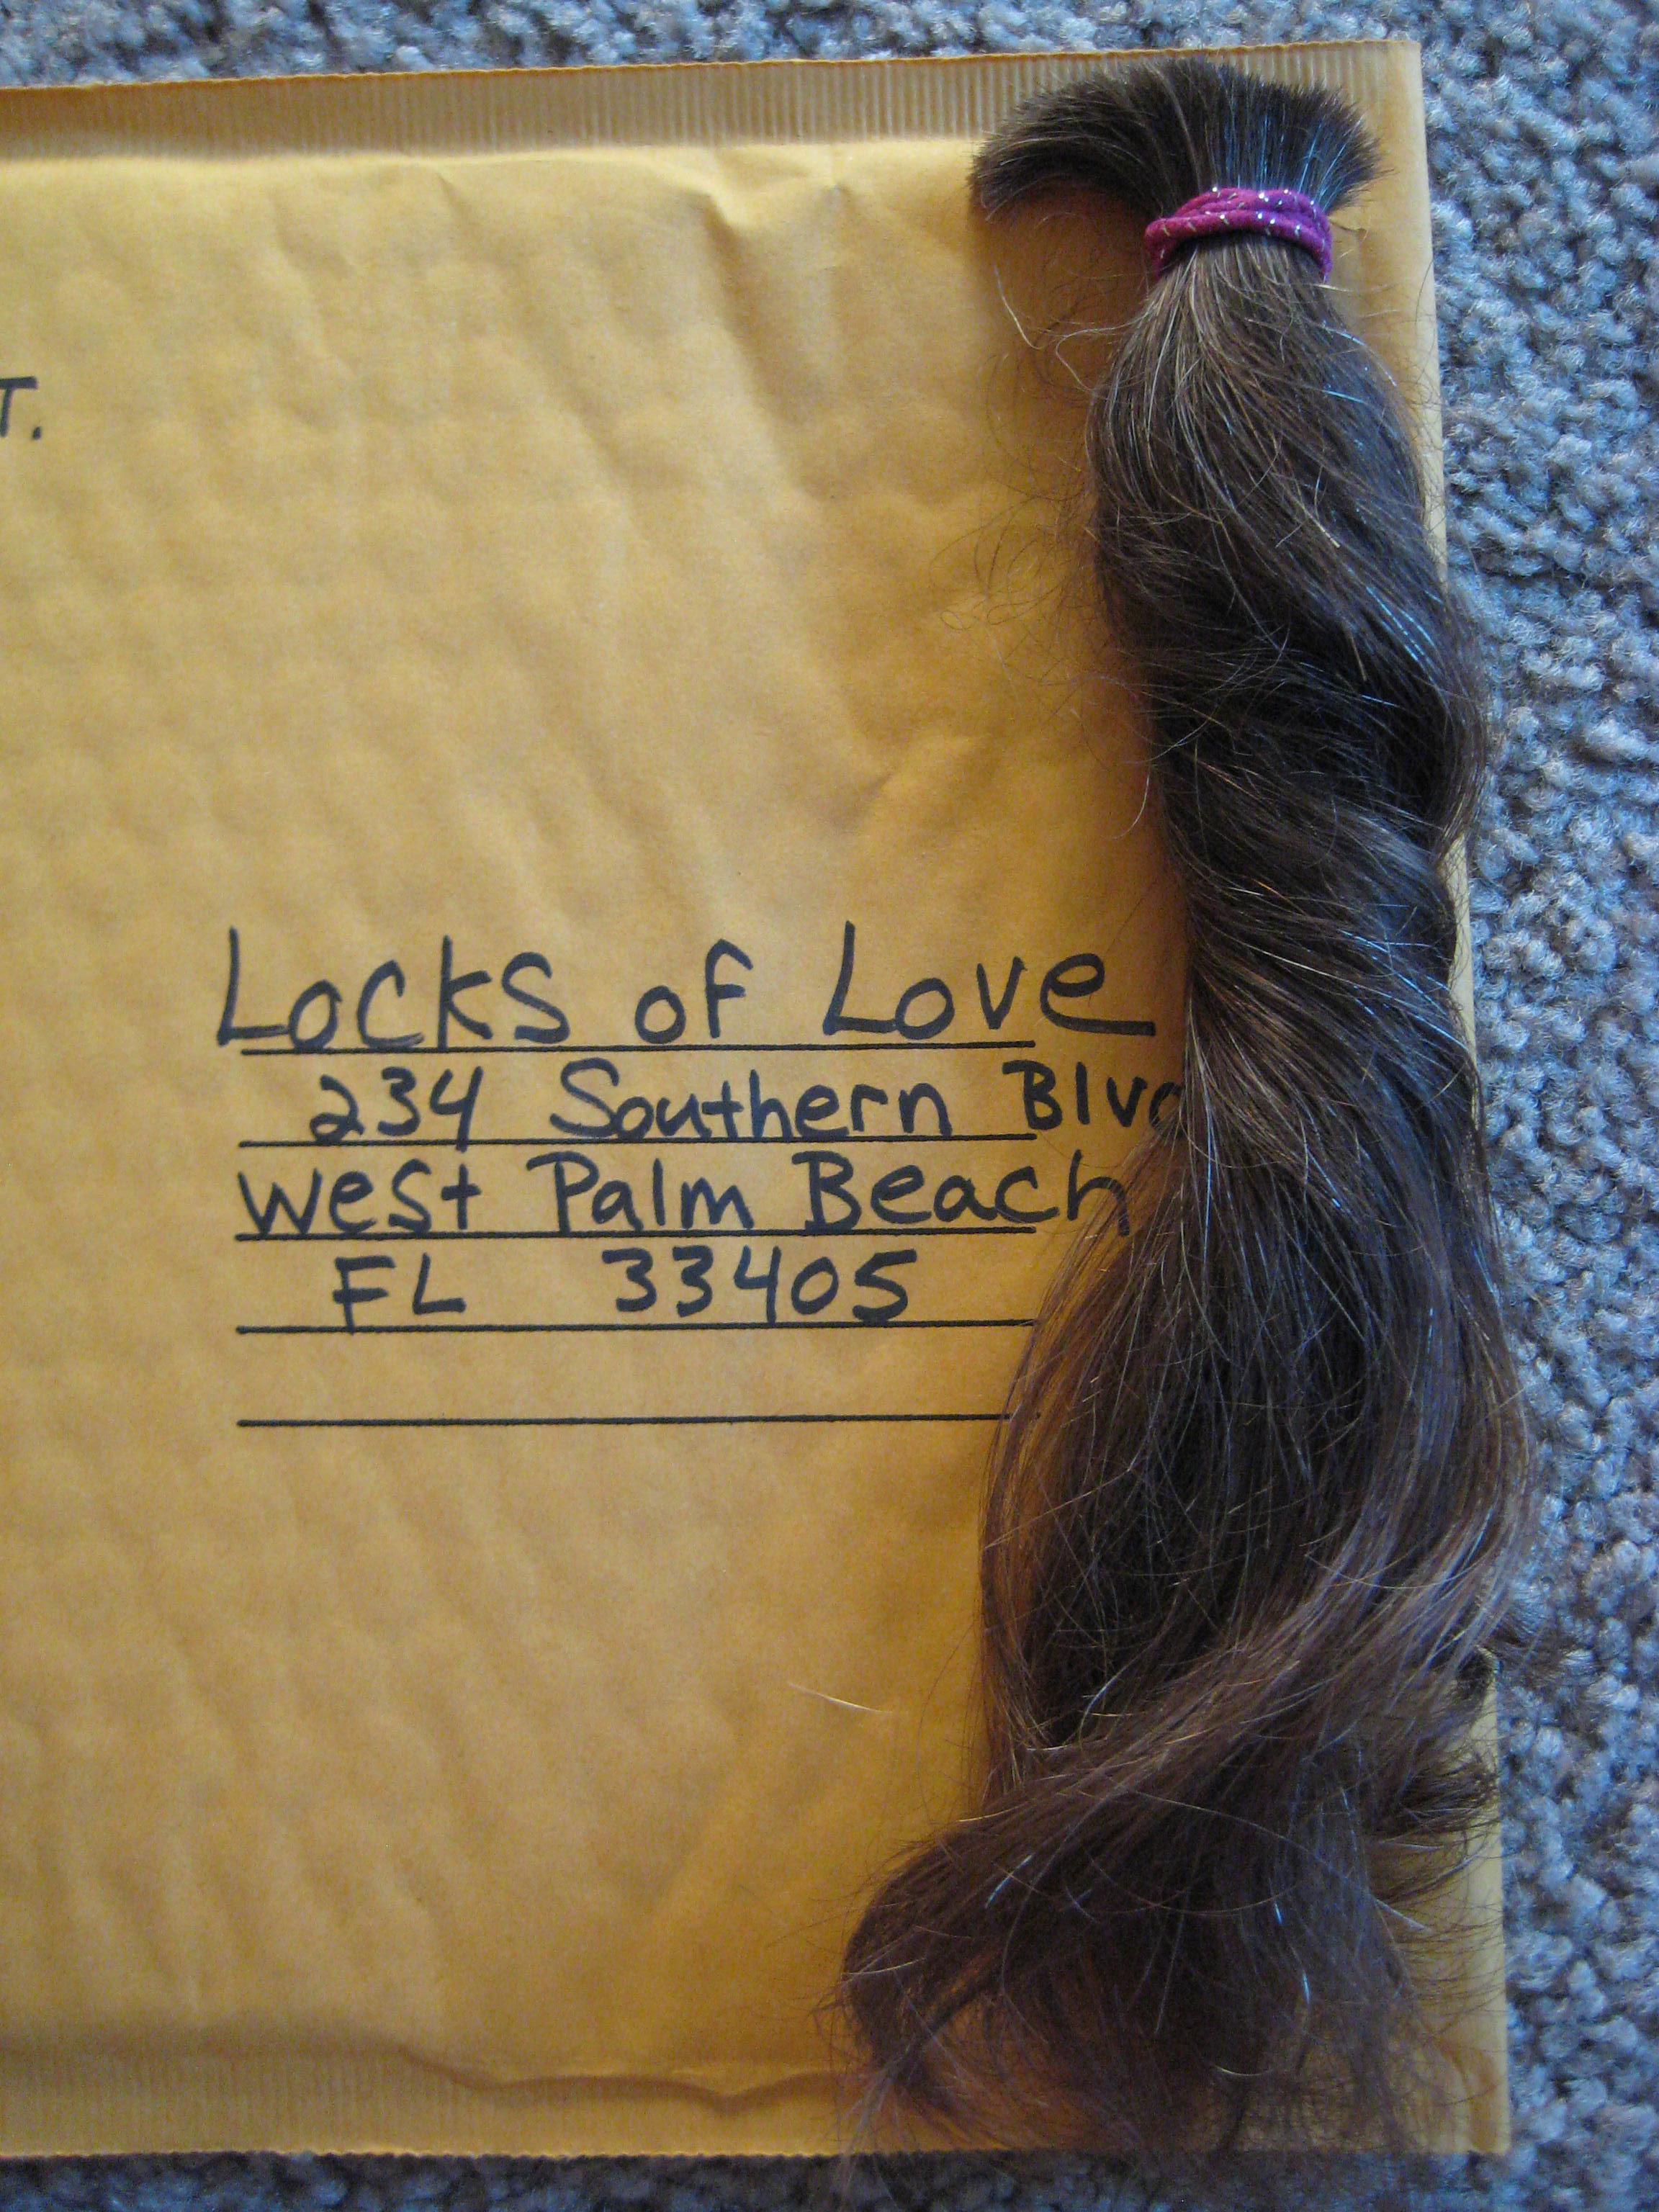 T.
Locks of Love
234 Southern Blvd
West Palm Beach
FL 33405